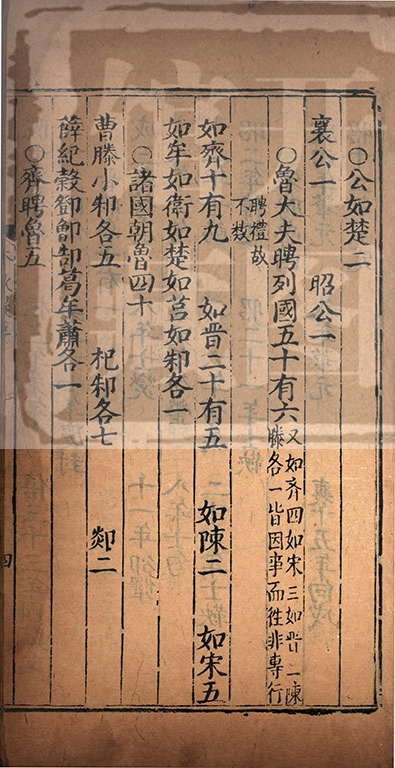 〇公如楚二
襄公一 昭公一
〇魯大夫聘列國五十有六 又如齐四如宋三如晋一陳
滕各一皆因事而徃非專行
聘禮故
不数
如齊十有九 如晋二十有五 如陳二 如宋五
如牟如衛如楚如莒如邾各一
〇諸國朝魯四十
曹滕小邾各五 杞邾各七 郯二
薛紀榖鄧鄫郜葛牟蕭各一
〇齊聘魯五
四